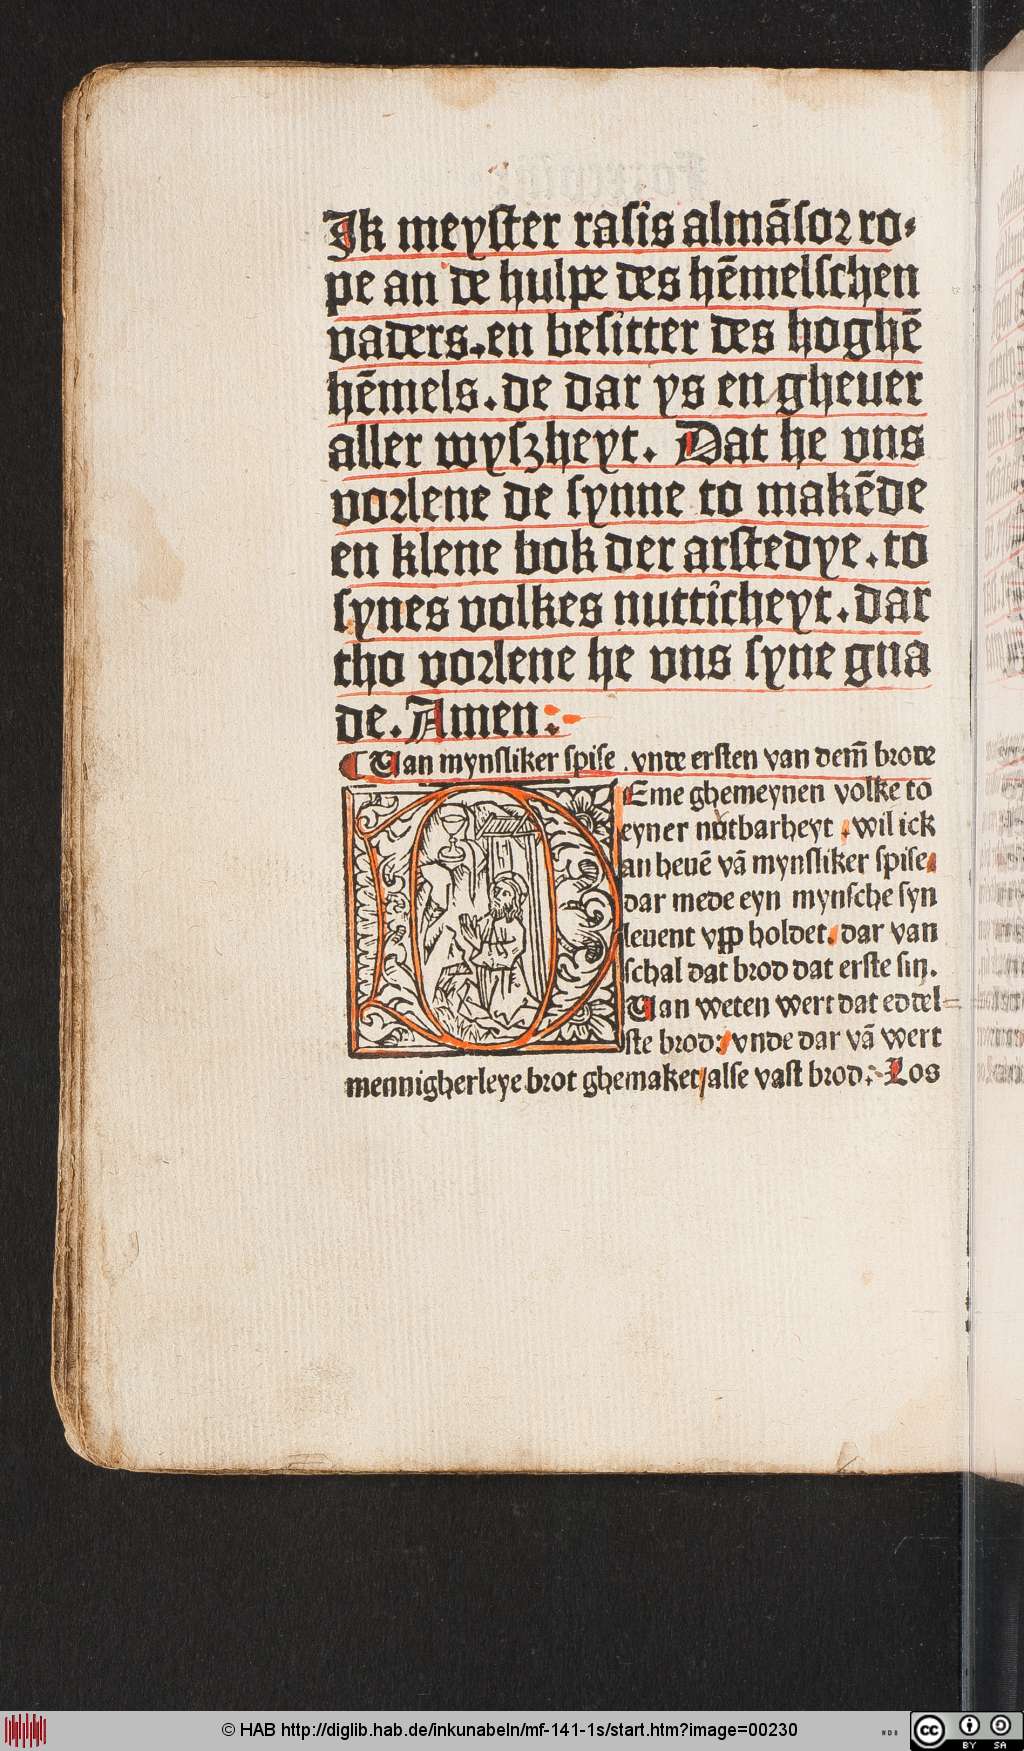 Jk meyster rasis almāsor ro⸗
pe an de hulpe des hēmelschen
vaders.en besitter des hoghē
hēmels.de dar ys en gheuer
aller wyszheyt. Dat he vns
vorlene de synne to makēde
en klene bok der arstedye.to
synes volkes nutticheyt.dar
tho vorlene he vns syne gna
de.Amen:
¶ Van mynsliker spise.vnde ersten van dem̄ brode
DEme ghemeynen volke to
eyner nutbarheyt.wil ick
an heuē vā mynsliker spise.
dar mede eyn mynsche syn
leuent vpp holdet.dar van
schal dat brod dat erste sin.
Van weten wert dat eddel⸗
ste brod:vnde dar vā wert
mennigherleye brot ghemaket/alse vast brod.Los
© HAB http://diglib.hab.de/inkunabeln/mf-141-1s/start.htm?image=00230
WDB
cc
BY SA